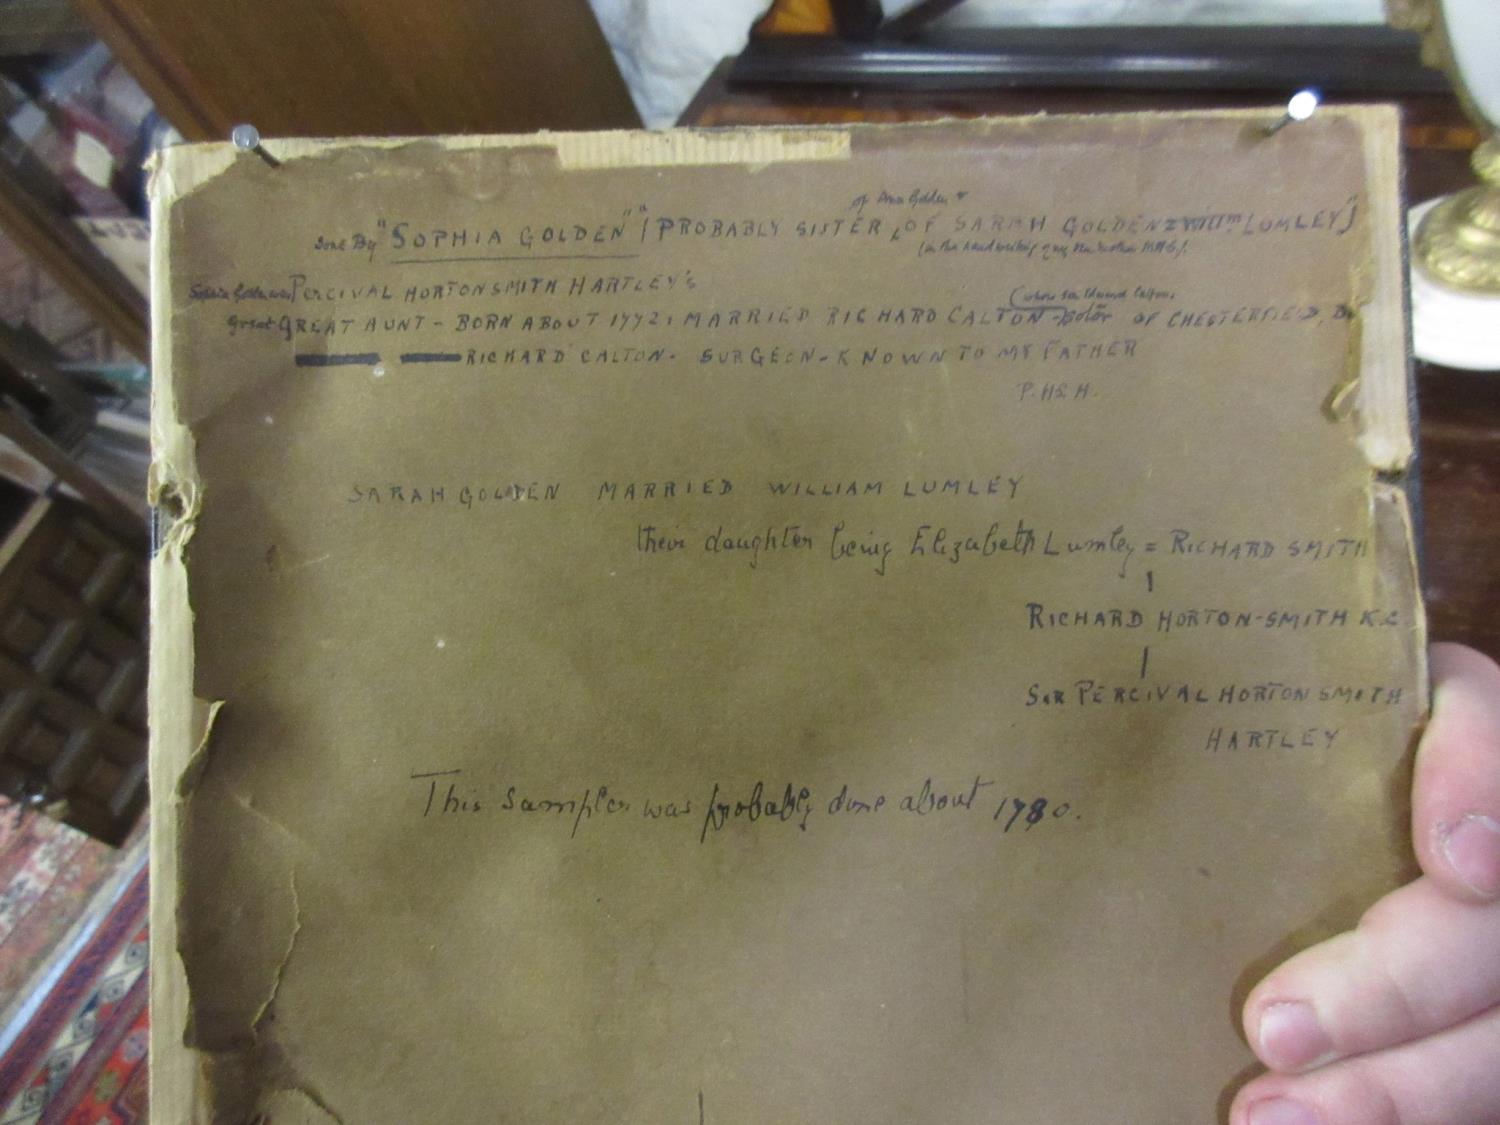 of Ann Golden &
Done By "SOPHIA GOLDEN" "(PROBABLY SISTER OF SARAH GOLDEN = Willm LUMLEY")
(in the handwriting of my
Sophia Golden was PERCIVAL HORTONSMITH HARTLEY'S
(whose son Edward Calton
Great GREAT AUNT - BORN ABOUT 1772, MARRIED RICHARD CALTON OF CHESTERFIELD, D
RICHARD CALTON. SURGEON - KNOWN TO MY FATHER
P. HS H.
SARAH GOLDEN MARRIED WILLIAM LUMLEY
their daughter being Elizabeth Lumley = RICHARD SMITH
RICHARD HORTON-SMITH K.C.
SIR PERCIVAL HORTON SMITH
HARTLEY
This sampler was probably done about 1780.